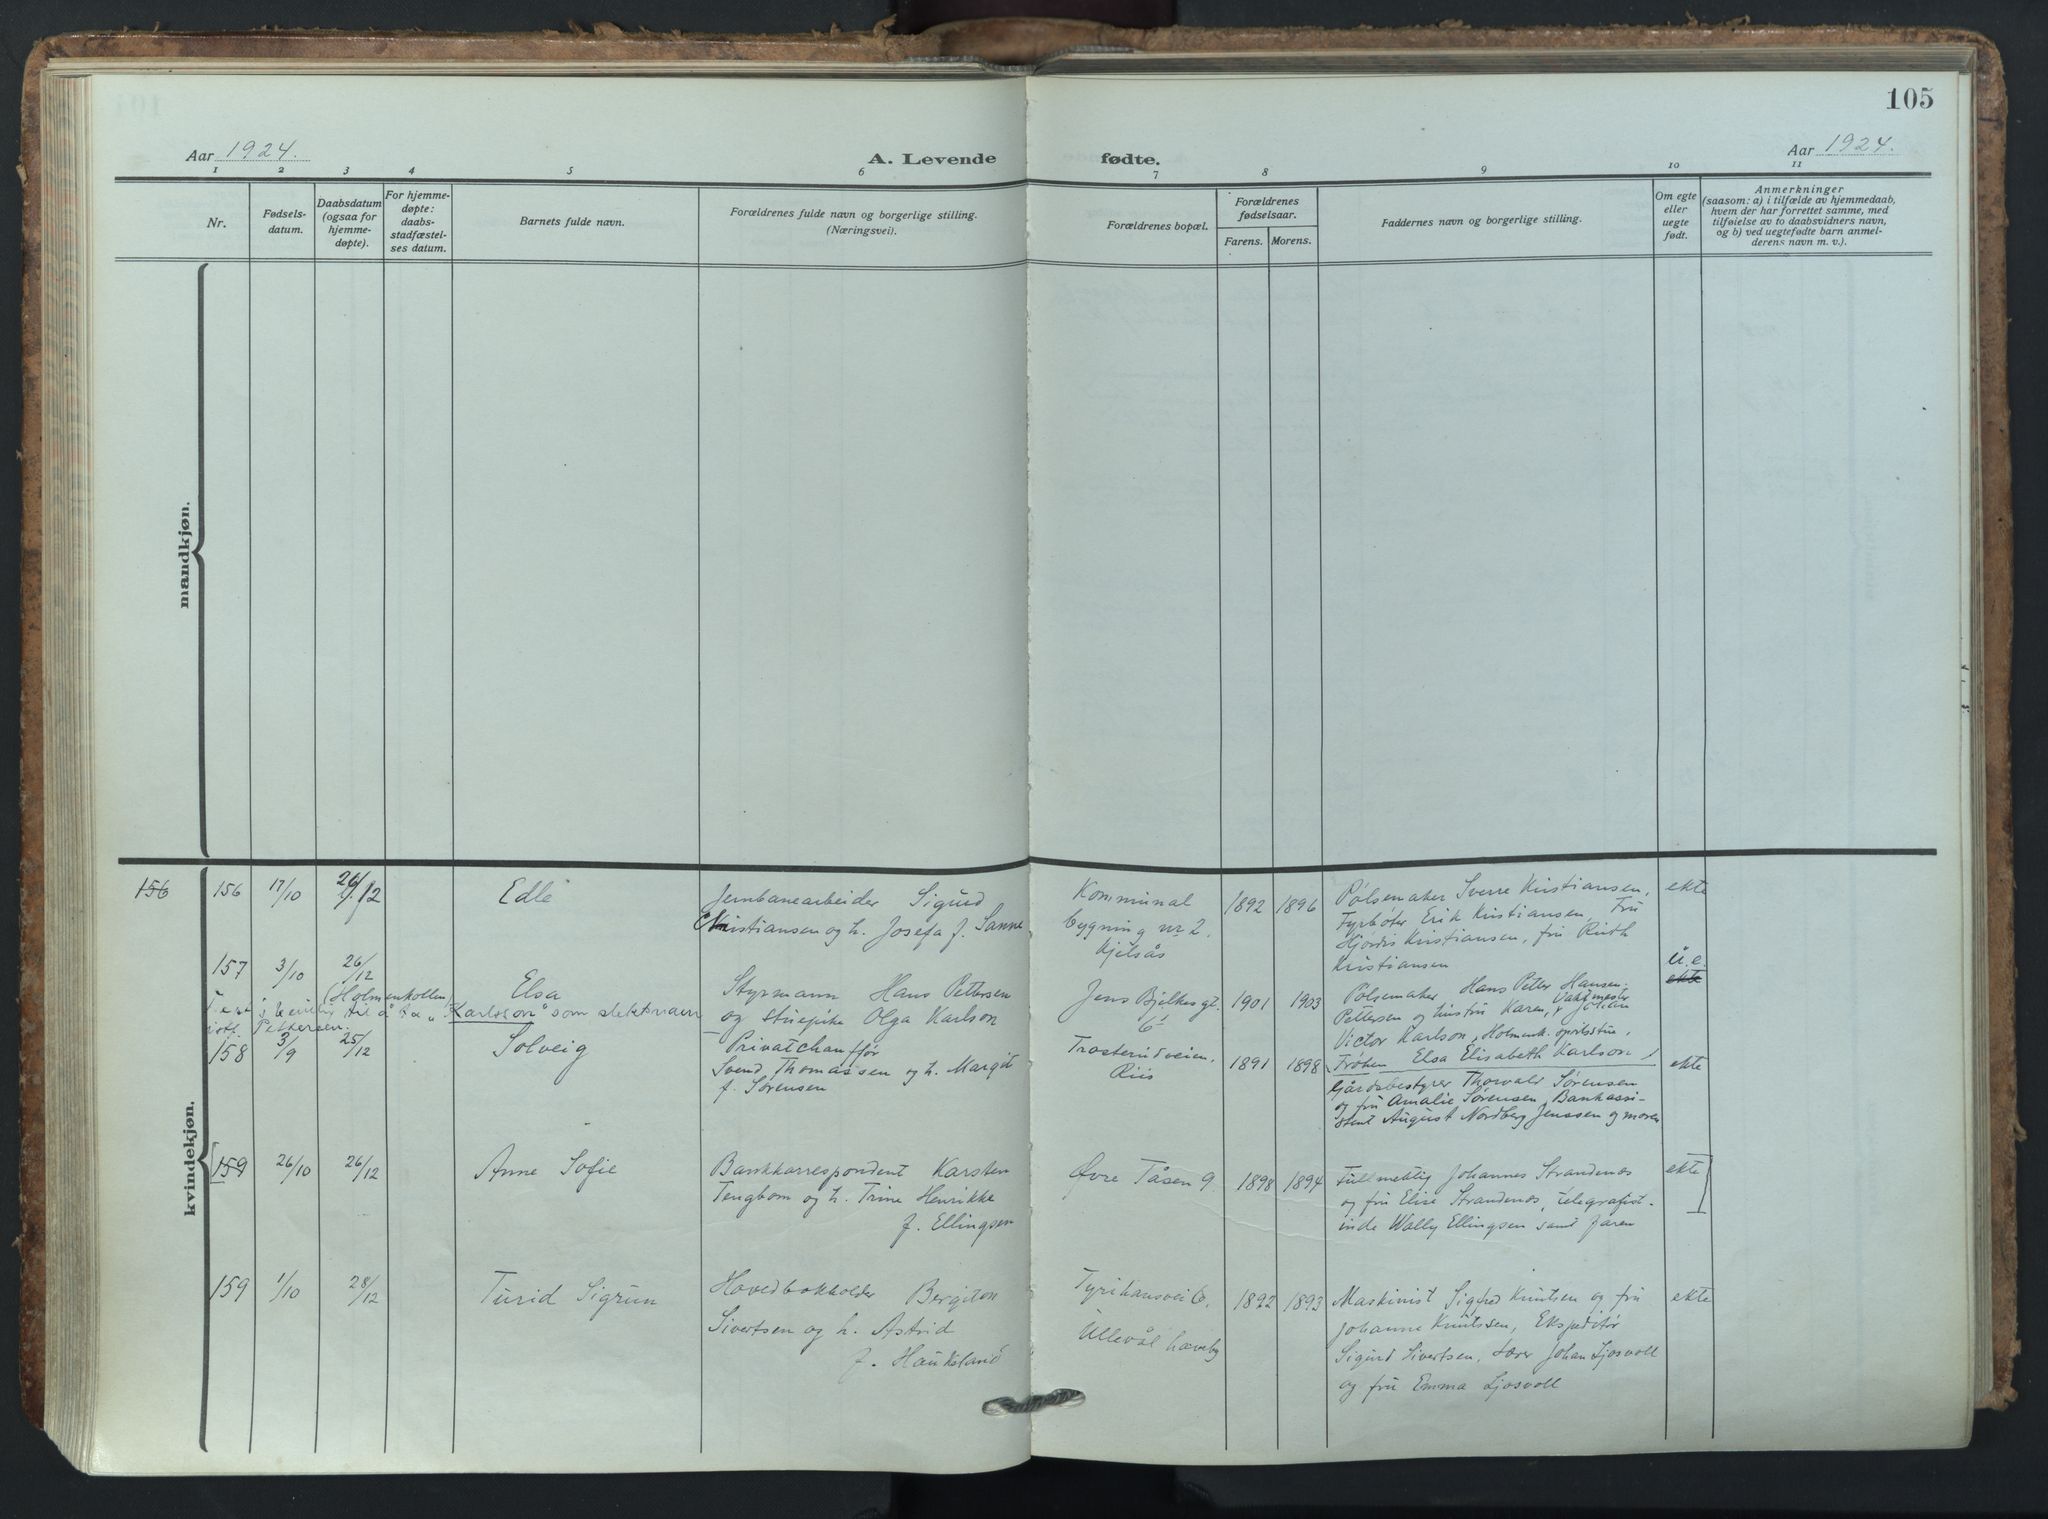 105
Aar 1924.
A. Levende
fødte.
Aar 1924.
1 2 3 4 5 6 7 8 9 10 11
Nr.
Fødsels-
datum.
Daabsdatum
(ogsaa for
hjemme-
døpte).
For hjemme-
døpte:
daabs-
stadfæstel-
ses datum.
Barnets fulde navn.
Forældrenes fulde navn og borgerlige stilling.
(Næringsvei).
Forældrenes bopæl.
Forældrenes
fødselsaar.
Farens. Morens.
Faddernes navn og borgerlige stilling.
Om egte
eller
uegte
født.
Anmerkninger
(saasom: a) i tilfælde av hjemmedaab,
hvem der har forrettet samme, med
tilføielse av to daabsvidners navn,
og b) ved uegtefødte barn anmel-
derens navn m. v.).
mandkjøn.
kvindekjøn.
156
156 17/10 26/12
Edle
Jernbanearbeider Sigurd
Kristiansen og h. Josefa f. Sanne
Kommunal
bygning nr 2,
Kjelsås
1892 1896
Pølsemaker Sverre Kristiansen,
Fyrbøter Erik Kristiansen, Fru
Hjørdis Kristiansen, fru Ruth
Kristiansen
ekte
157 3/10 26/12
(Holmenkollen
Elsa
til å ta "Karlsson" som slektsnavn
Pettersen.
Styrmann Hans Pettersen
og stuepike Olga Karlson
Jens Bjelkesgt.
6
1901 1903
Pølsemaker Hans Peter Hansen.
Pettersen og hustru Karen, Vaktmester Johan
Victor Karlson, Holmenk. sportsstue,
Frøken Elsa Elisabeth Karlson
u.e.
ekte
158 3/9 25/12
Solveig
Privatchauffør
Svend Thomassen og h. Margit
f. Sørensen
Trosterudveien,
Riis
1891 1898
Gårdsbestyrer Thorvald Sørensen
og fru Amalie Sørensen, Bankassi-
stent August Nordberg Jenssen og moren
ekte
159 26/10 26/12
Anne Sofie
Bankkorrespondent Karsten
Tengbom og h. Trine Henrikke
f. Ellingsen
Øvre Tåsen 9
1898 1894
Fullmektig Johannes Strandenæs
og fru Elise Strandenæs, telegrafist-
inde Wally Ellingsen samt faren
ekte
159 1/10 28/12
Turid Sigrun
Hovedbokholder Bergiton
Sivertsen og h. Astrid
f. Haukland
Tyrihansvei 6,
Ullevål haveby
1892 1893
Maskinist Sigurd Knutsen og fru
Johanne Knutssen, Ekspeditør
Sigurd Sivertsen, Lærer Johan Ljosvoll
og fru Emma Ljosvoll
ekte